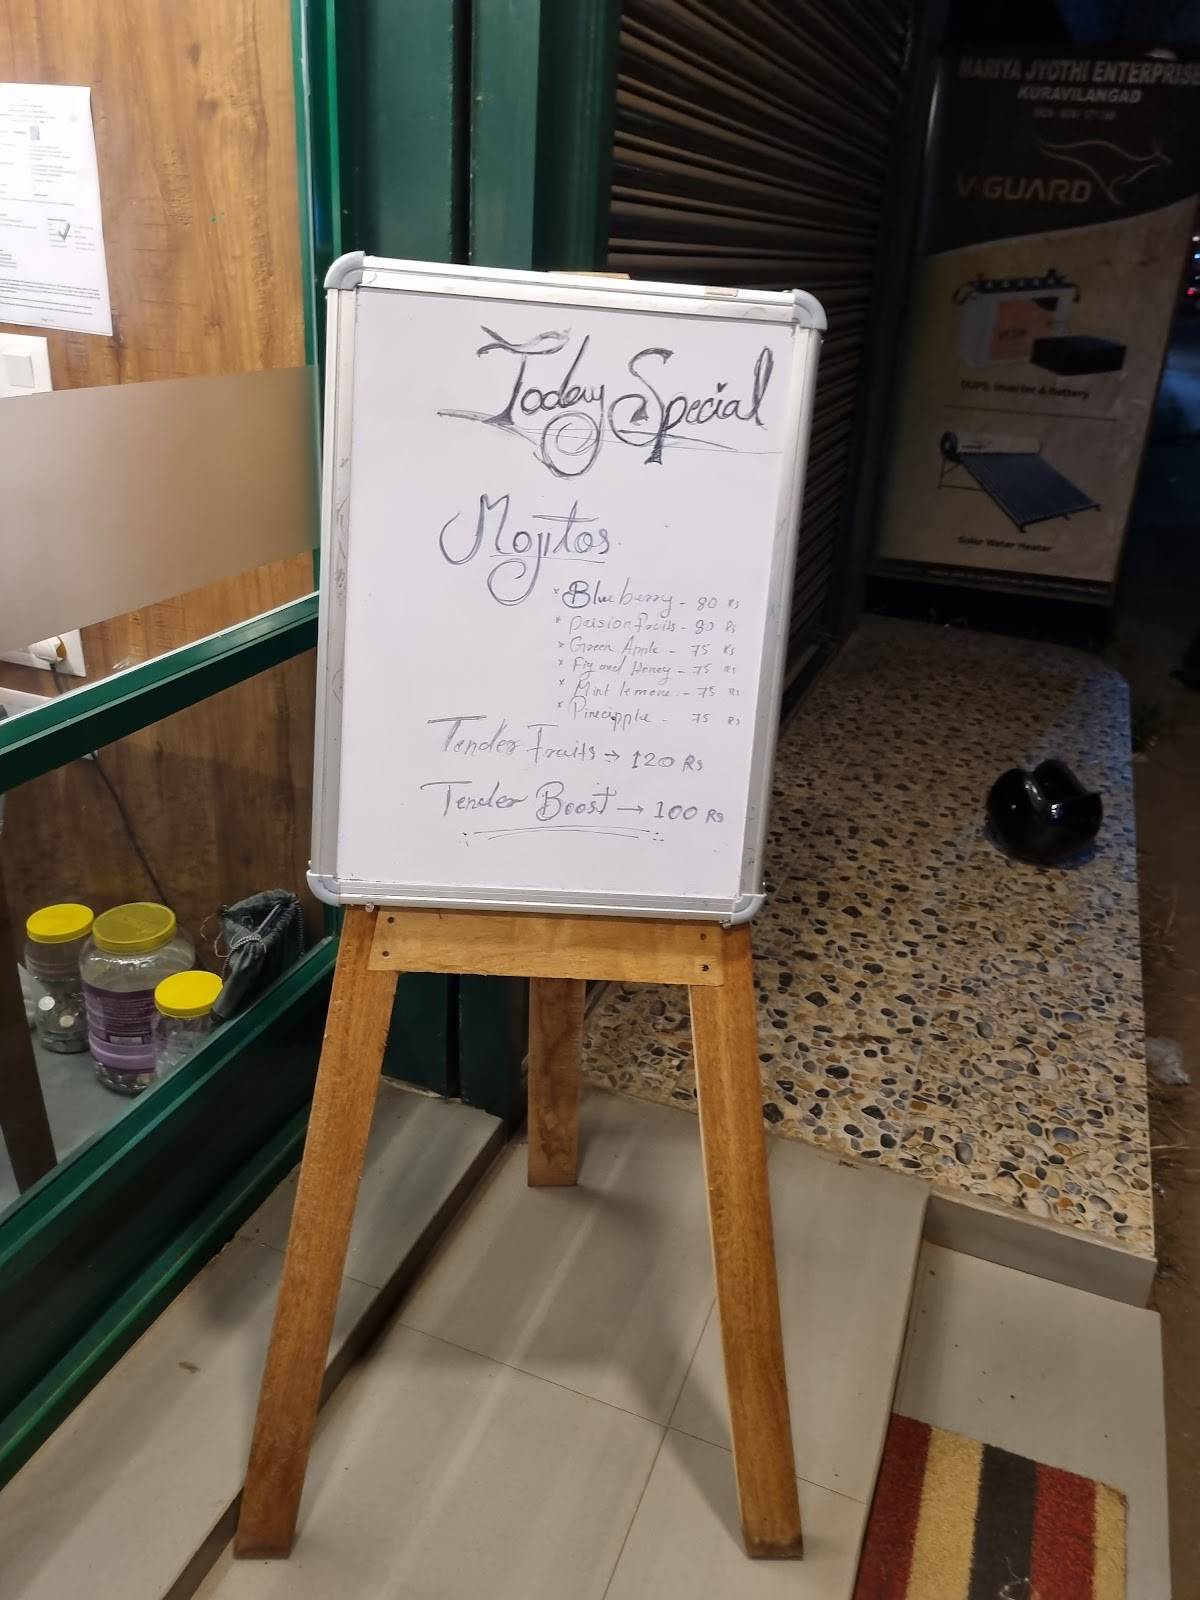 Today Special
Mojitos
* Blueberry - 80 Rs
* passionfruits - 80 Rs
* Green Apple - 75 Rs
* Fig and Honey - 75 Rs
* Mint lemone - 75 Rs
* Pineapple - 75 Rs
Tender Fruits → 120 Rs
Tender Boost → 100 Rs
MARIYA JYOTHI ENTERPRISE
KURAVILANGAD
V-GUARD
DUPS, Inverter & Battery
Solar Water Heater